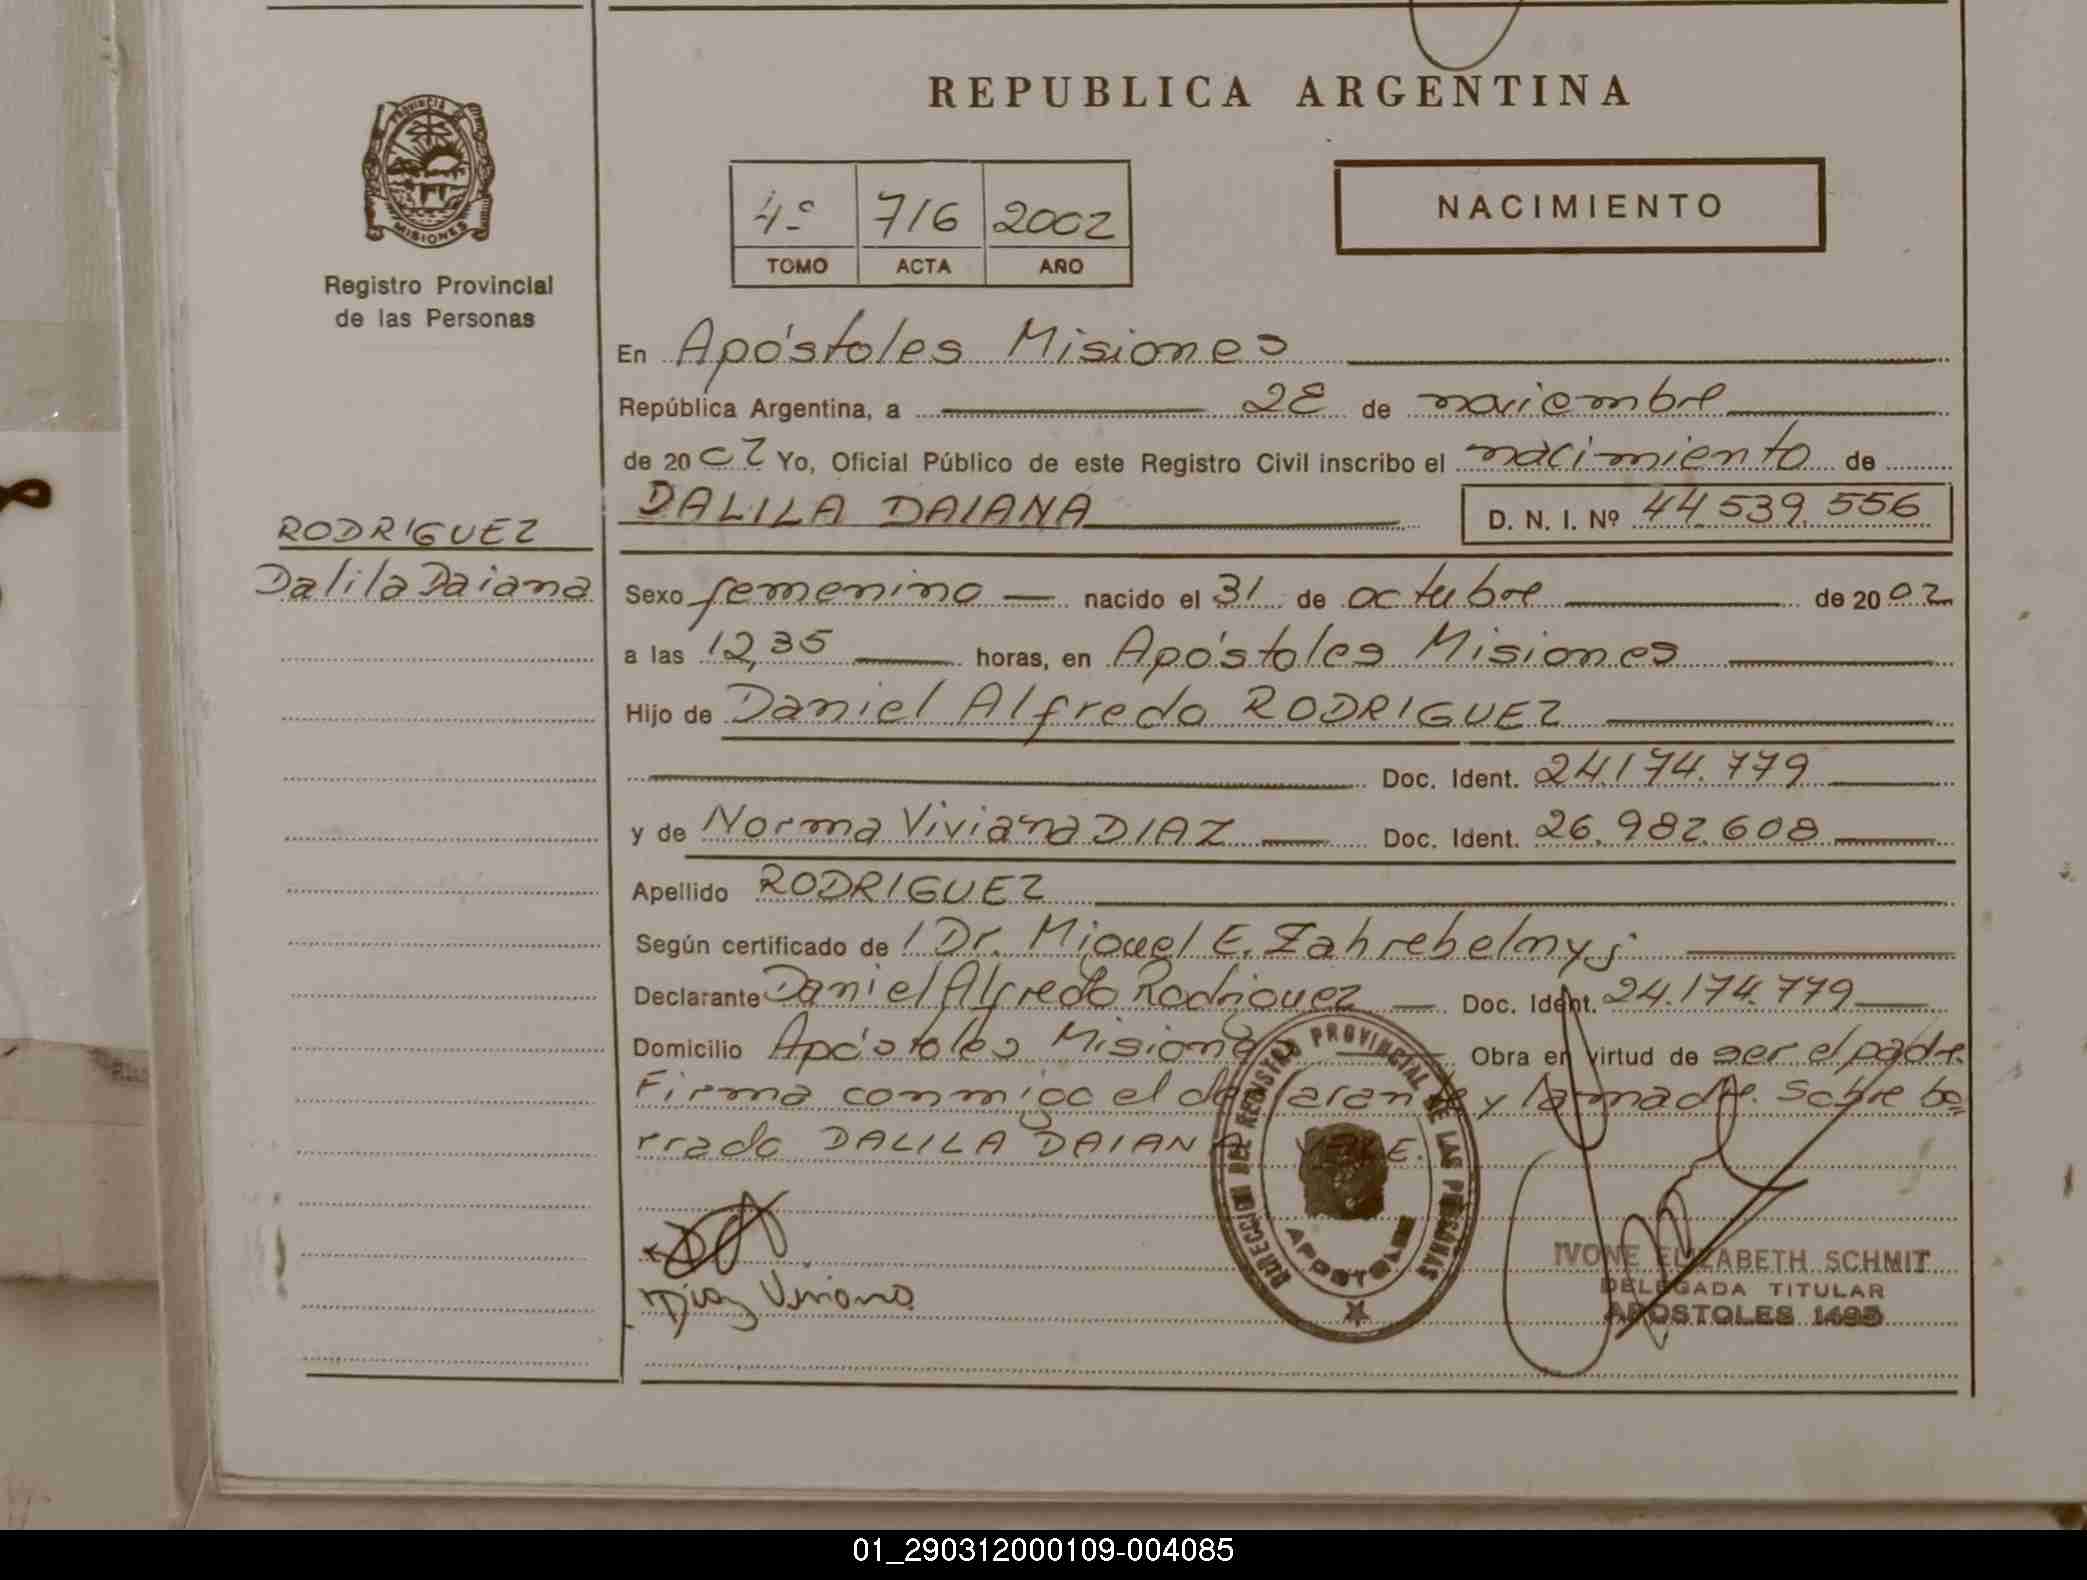 REPUBLICA ARGENTINA
PROVINCIA DE
MISIONES
Registro Provincial
de las Personas
4º 716 2002
TOMO ACTA AÑO
NACIMIENTO
En Apóstoles Misiones
República Argentina, a 28 de noviembre
de 2002 Yo, Oficial Público de este Registro Civil inscribo el nacimiento de
DALILA DAIANA D. N. I. Nº 44.539.556
RODRIGUEZ
Dalila Daiana
Sexo femenino nacido el 31 de octubre de 2002
a las 12,35 horas, en Apóstoles Misiones
Hijo de Daniel Alfredo RODRIGUEZ
Doc. Ident. 24.174.779
y de Norma Viviana DIAZ Doc. Ident. 26.982.608
Apellido RODRIGUEZ
Según certificado de / Dr. Miguel E. Zahrebelny;
Declarante Daniel Alfredo Rodriguez Doc. Ident. 24.174.779
Domicilio Apóstoles Misiones Obra en virtud de ser el padre
Firma conmigo el declarante y la madre. Sobre bo=
rrado DALILA DAIANA VALE.
DIRECCION DEL REGISTRO PROVINCIAL DE LAS PERSONAS
APOSTOLES
Díaz Viviana
IVONE ELIZABETH SCHMIT
DELEGADA TITULAR
APOSTOLES 1495
01_290312000109-004085